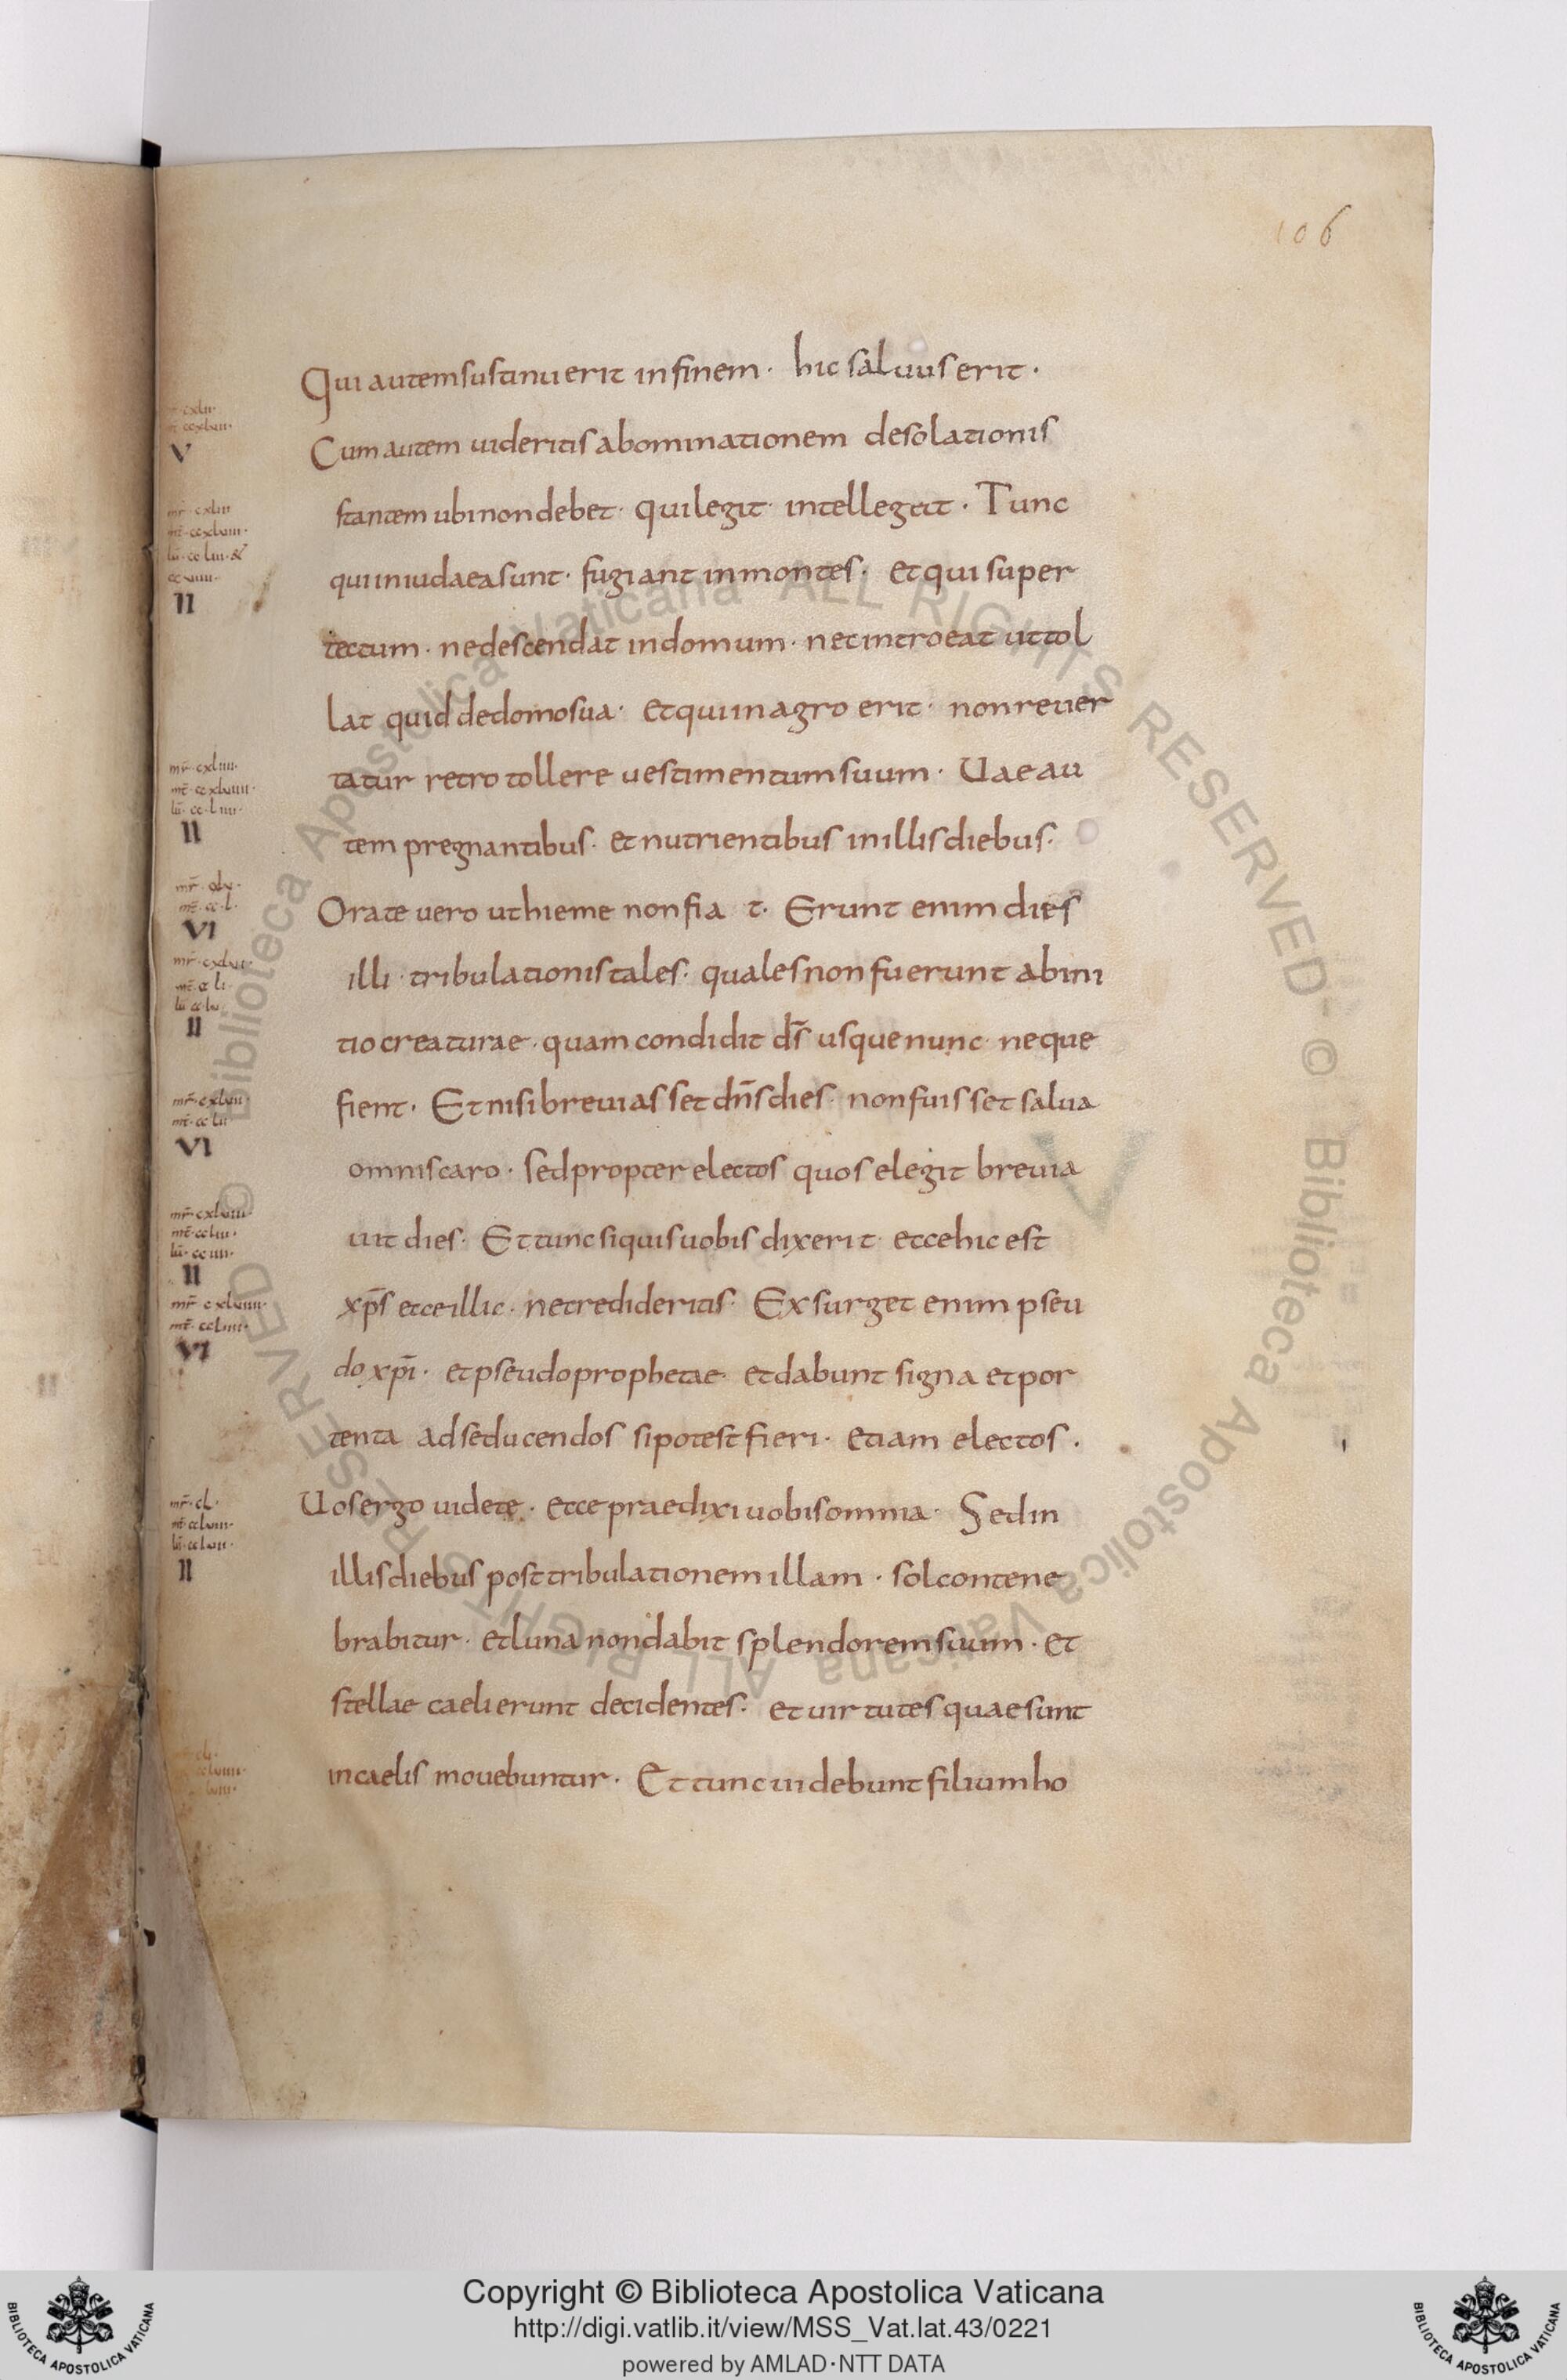 106
Qui autem sustinuerit in finem · hic saluus erit ·
Cum autem uideritis abominationem desolationis
stantem ubi non debet · qui legit · intellegat · Tunc
qui in iudaea sunt · fugiant in montes · et qui super
tectum · ne descendat in domum · nec introeat ut tol
lat quid de domo sua · et qui in agro erit · non reuer
tatur retro tollere uestimentum suum · Uae au
tem pregnantibus · et nutrientibus in illis diebus ·
Orate uero ut hieme non fia t · Erunt enim dies
illi · tribulationis tales · quales non fuerunt ab ini
tio creaturae · quam condidit d̄s usque nunc · neque
fient · Et nisi breuiasset dn̄s dies · non fuisset salua
omnis caro · sed propter electos quos elegit breuia
uit dies · Et tunc si quis uobis dixerit · ecce hic est
xp̄s ecce illic · ne credideritis · Exsurget enim pseu
do xp̄i · et pseudo prophetae · et dabunt signa et por
tenta ad seducendos si potest fieri · etiam electos ·
Uos ergo uidete · ecce praedixi uobis omnia · Sed in
illis diebus post tribulationem illam · sol contene
brabitur · et luna non dabit splendorem suum · et
stellae caeli erunt decidentes · et uirtutes quae sunt
in caelis mouebuntur · Et tunc uidebunt filium ho
V
II
II
VI
II
VI
II
VI
II
© Biblioteca Apostolica Vaticana ALL RIGHTS RESERVED
© Biblioteca Apostolica Vaticana ALL RIGHTS RESERVED
Copyright © Biblioteca Apostolica Vaticana
http://digi.vatlib.it/view/MSS_Vat.lat.43/0221
powered by AMLAD·NTT DATA
BIBLIOTECA APOSTOLICA VATICANA
BIBLIOTECA APOSTOLICA VATICANA